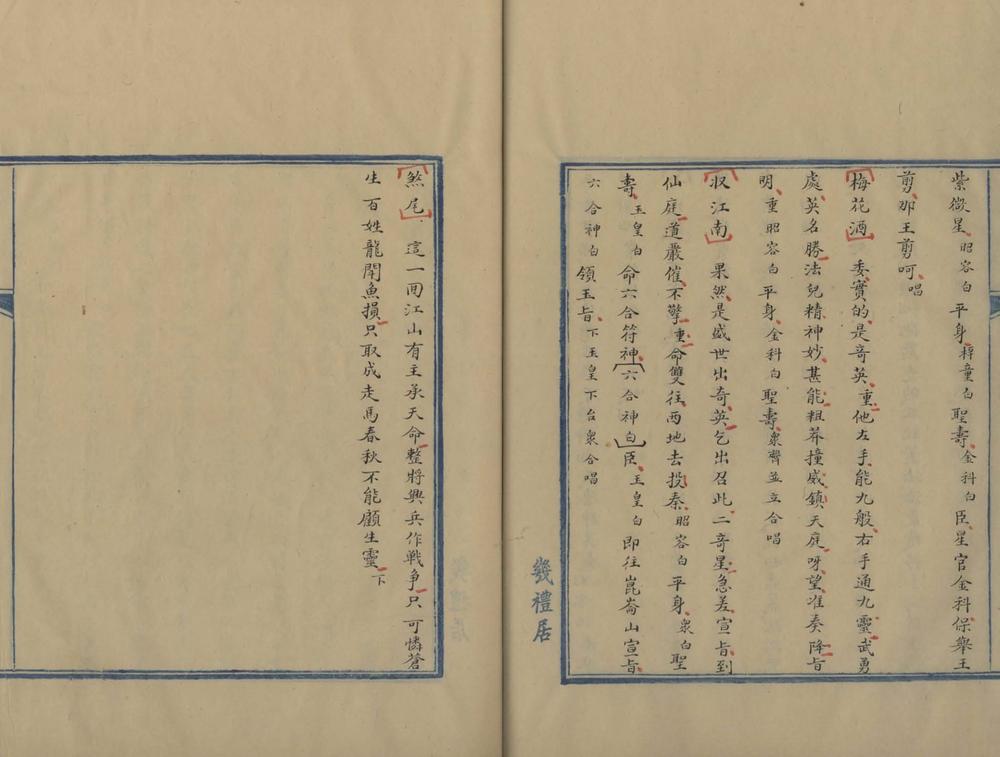 紫微星昭容白平身梓童白聖壽金科白臣星官金科保舉王
剪那王剪呵唱
梅花酒 委實的是奇英重他左手能九般右手通九靈武勇
處英名勝法兒精神妙甚能粗莽撞威鎮天庭呀望准奏降旨
明重昭容白平身金科白聖壽衆齊並立合唱
収江南 果然是盛世出奇英乞出召此二奇星急差宣旨到
仙庭道嚴催不擎重命雙往西地去投秦昭容白平身衆白聖
壽玉皇白命六合符神六合神白臣玉皇白即往崑崙山宣旨
六合神白領玉旨下玉皇下台衆合唱
幾禮居
煞尾 這一回江山有主承天命整將興兵作戰爭只可憐蒼
生百姓龍鬧魚損只取成走馬春秋不能顧生靈下